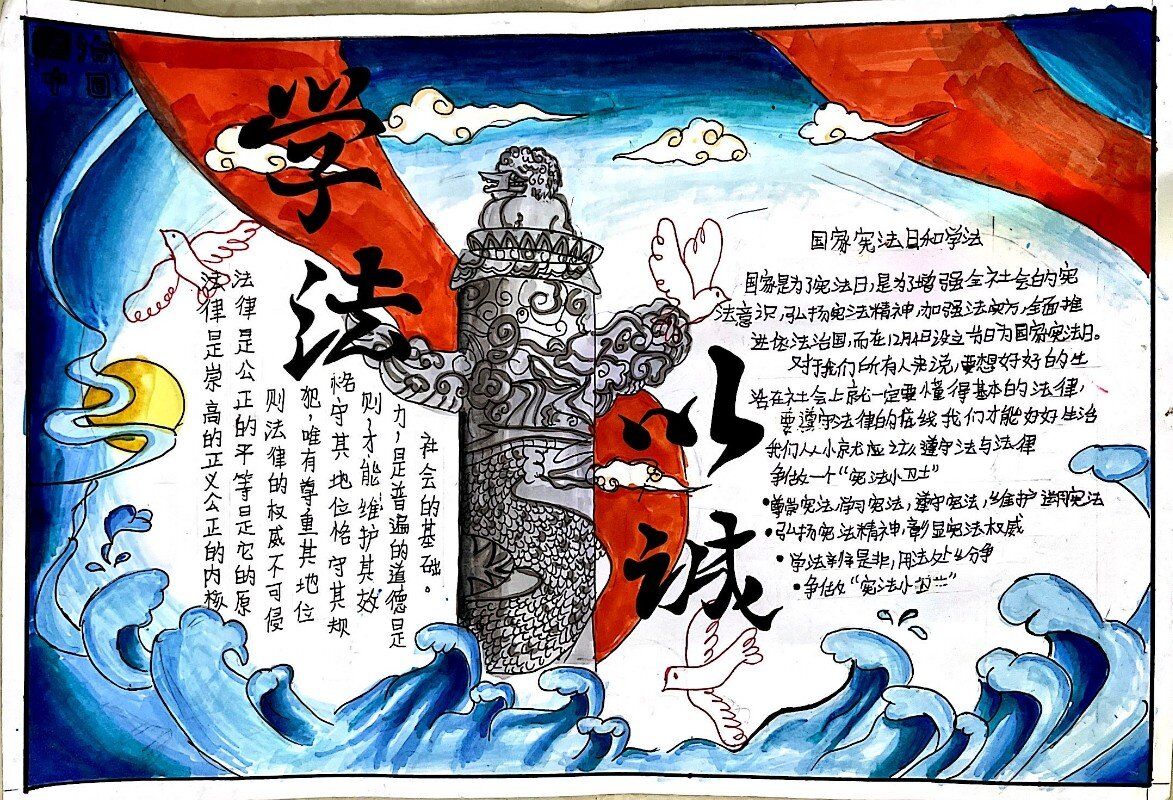 治
中国
学法
以诚
法律是崇高的正义公正的内核
法律是公正的平等是它的原
则法律的权威不可侵
犯,唯有尊重其地位
恪守其地位恪守其规
则,才能维护其效
力,是普遍的道德是
社会的基础。
国家宪法日和学法
国家是为了宪法日,是为了增强全社会的宪
法意识,弘扬宪法精神,加强法,全面推
进依法治国,而在12月4日设立节日为国家宪法日。
对于我们所有人来说,要想好好的生
活在社会上就一定要懂得基本的法律,
要遵守法律的底线我们才能好好生活
我们从小遵守法与法律
争做一个"宪法小卫士"
•尊崇宪法,学习宪法,遵守宪法,维护运用宪法
•弘扬宪法精神,彰显宪法权威
•学法是非,用法处纷争
•争做"宪法小卫士"